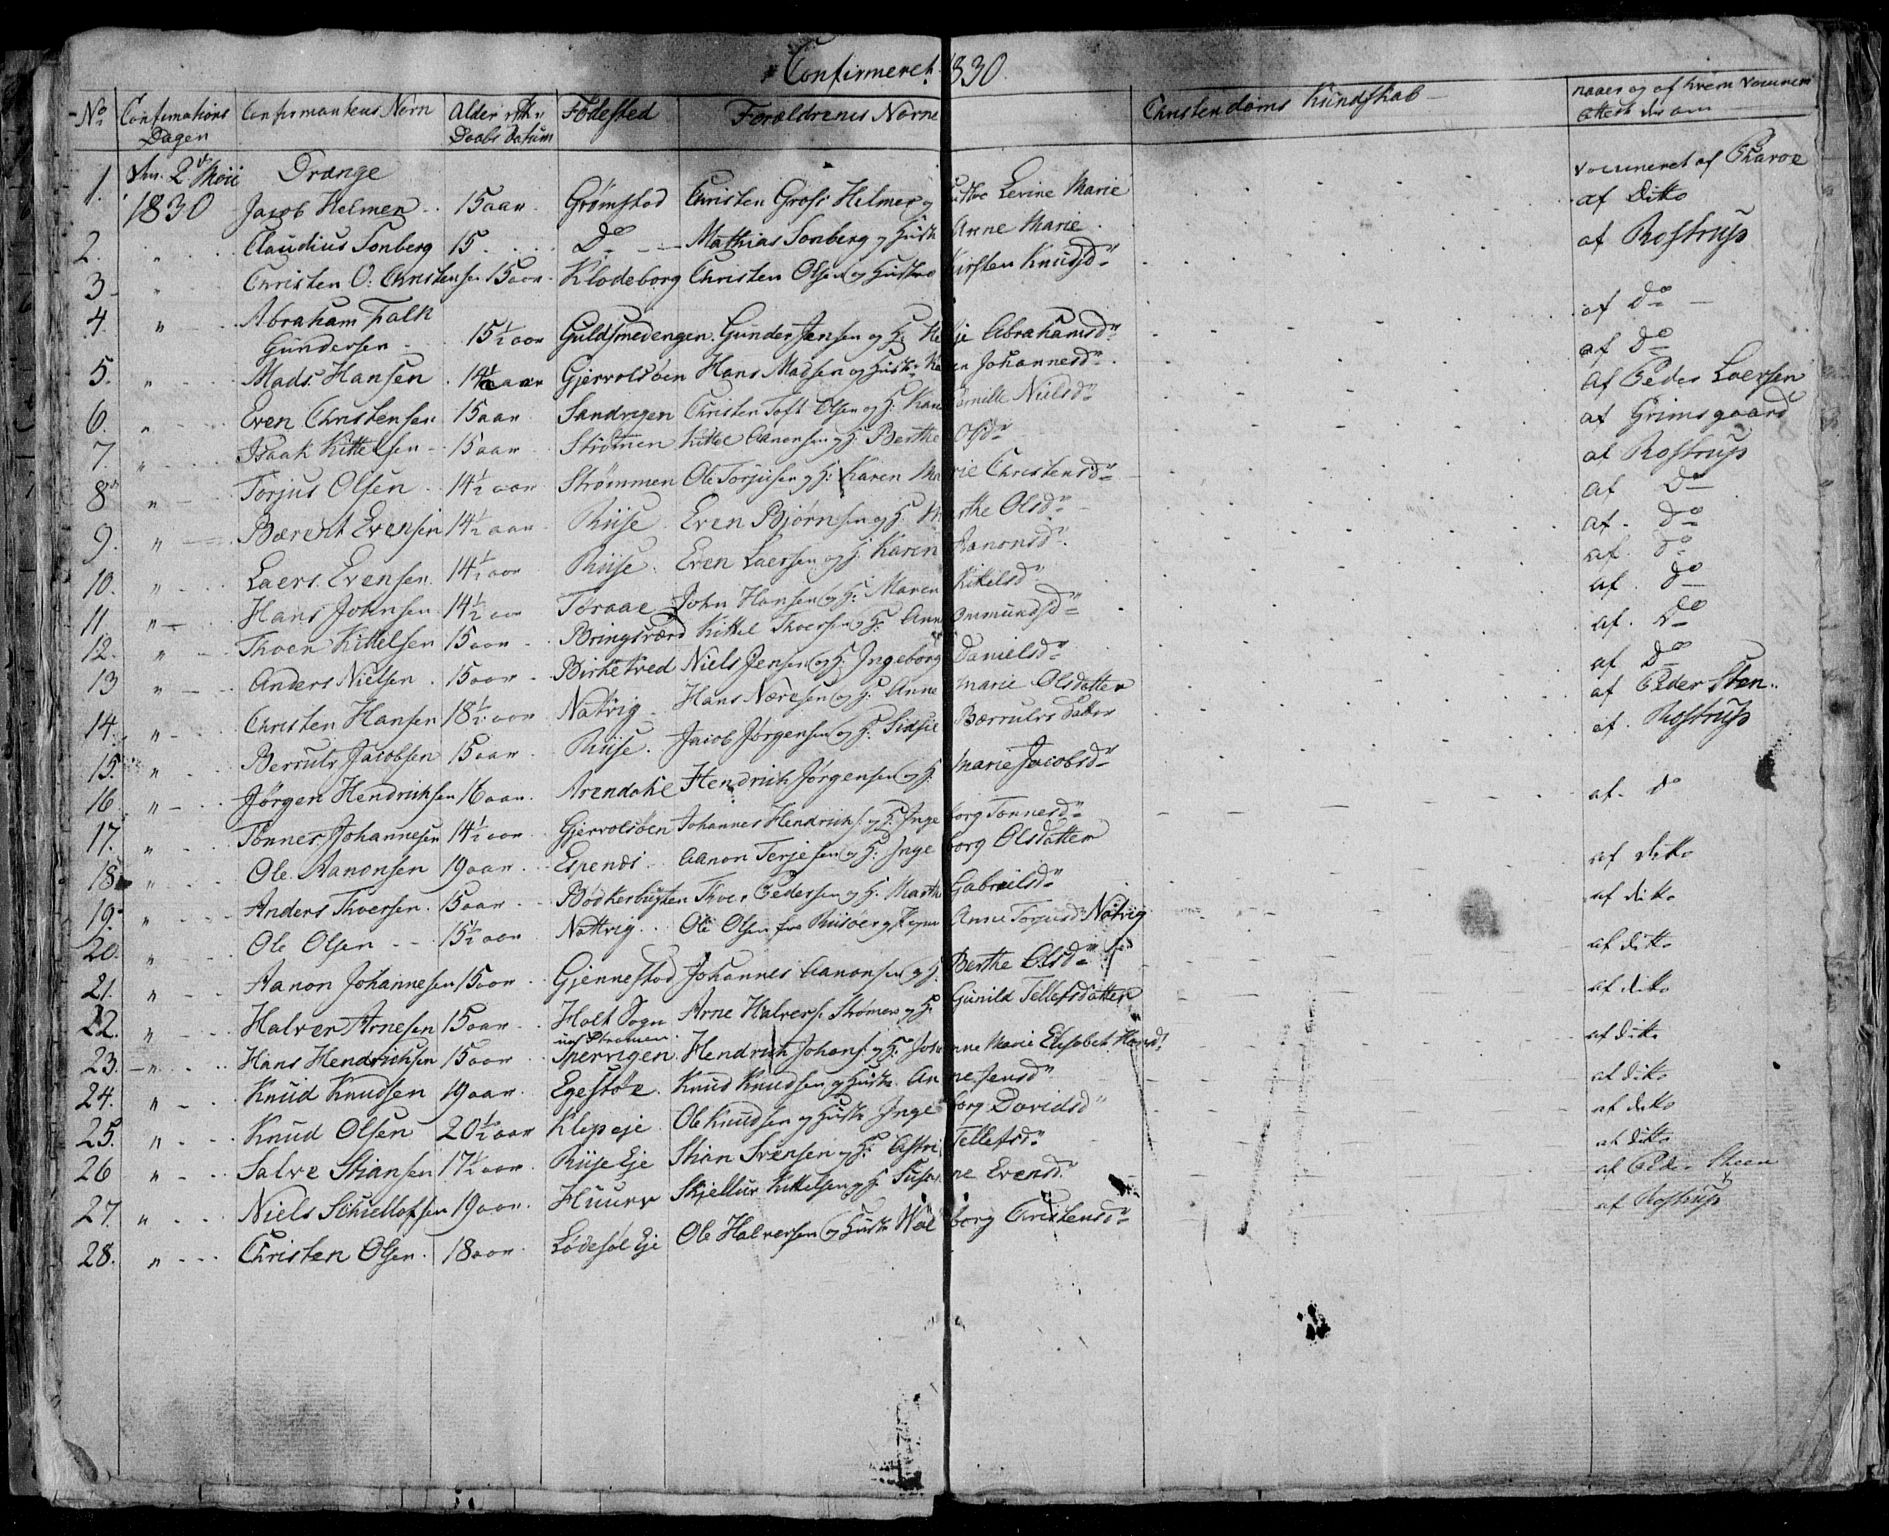 Confirmeret 1830.
No. Confirmations Dagen Confirmantens Navn Alder efter Daabs Datum Fødested Forældrenes Navne Christendoms Kundskab naar og af hvem vaccineret Attest der om
1. den 2d Maii 1830 Drenge
Jacob Helmer 15 aar Grømstad Christen Gross Helmer og Hustro Levine Marie vaccineret af Tharoe
2. " Claudius Sonberg 15 Do Mathias Sonberg og Hust Anne Marie af Ditto
3 " Christen O: Christensen 15 aar Klodeborg Christen Olsen og Hustro Kirsten Knudsdr af Rostrup
4. " Abraham Falk
Gundersen 15½ aar Guldsmedengen. Gunder Jensen og H: Helje Abrahamsdr af Do
5. " Mads Hansen 14½ aar Gjervolsøen Hans Madsen og Hustr: Karen Johannesdr af Do
6. " Even Christensen 15 aar Sandvigen Christen Toft Olsen og H: Karen Pernille Nielsdr af Peder Laersen
7. " Isaak Kittelsen 15 aar Strømen Kittel Aanonsen og H: Berthe Olsdr af Grimsgaard
8 " Torjus Olsen 14½ aar Strømmen Ole Torjusen og H: Karen Marie Christensdr af Rostrup
9. " Bærent Evensen 14½ aar Riise Even Bjørnsen og H. Marthe Olsdr af Do
10. " Laers Evensen 14½ aar Riise. Even Laersen og H: Karen Aanonsd. af. Do
11. " Hans Johnsen 14½ aar Toraae John Hansen og H: Maren Kittelsdr af. Do
12. " Thoer Kittelsen 15 aar Bringsværd Kittel Thoersen og H: Anne Ommundsdr af. Do
13 " Anders Nielsen 15 aar Birketved Niels Jensen og H: Ingeborg Danielsdr af. Do
14. " Christen Hansen 18½ aar Natvig Hans Næresen og H: Anne Marie Olsdatter af Do
15. " Berrulv Jacobsen 15 aar Riise. Jacob Jørgensen og H: Sidsel Bærrulvs Datter af Peder Sten
16. " Jørgen Hendrichsen 16 aar. Arendahl Hendrich Jørgensen og H: Marie Jacobsdr af. Rostrup
17. " Tønnes Johannesen 14½ aar Gjervolsøen Johannes Hendrichs. og H: Ingeborg Tønnesdr af. do
18 " Ole Aanonsen 19 aar. Espenæs Aanon Terjesen og H: Ingeborg Olsdatter af ditto
19. " Anders Thoersen. 15 aar Bødkerbugten Thoer Pedersen og H. Marthe Gabrielsdr af ditto
20. " Ole Olsen 15½ aar Nattvig Ole Olsen fra Riisøer og Anne Torjusd: Natvig af ditto
21. " Aanon Johannesen 15 aar Gjennestad Johannes Aanonsen og H: Berthe Olsdr af ditto
22. " Halver Arnesen 15 aar Holt Sogn Arne Halvers. Strømen og H: Gunild Tellefsdatter af ditto
23. " Hans Hendrichsen 15 aar Sperrigen. Hendrich Johans. og H: Johanne Marie Elisabet af ditto
24. " Knud Knudsen 19 aar. Egestøe Knud Knudsen og Hustr. Anne Jensdr af ditto
25. " Knud Olsen 20½ aar Klep eje Ole Knudsen og Hustr Ingeborg Davidsdr af ditto
26 " Salve Stiansen 17½ aar Riise Eje Stian Svensen og H: Astri Tellefsdr af Peder Steen
27. " Niels Schiellofsen 19 aar. Huurv Skjellur Kittelsen og H. Susanne Evensd. af Rostrup
28. " Christen Olsen. 18 aar. Lødesøl Eje Ole Halversen og Hustr Wolborg Christensdr